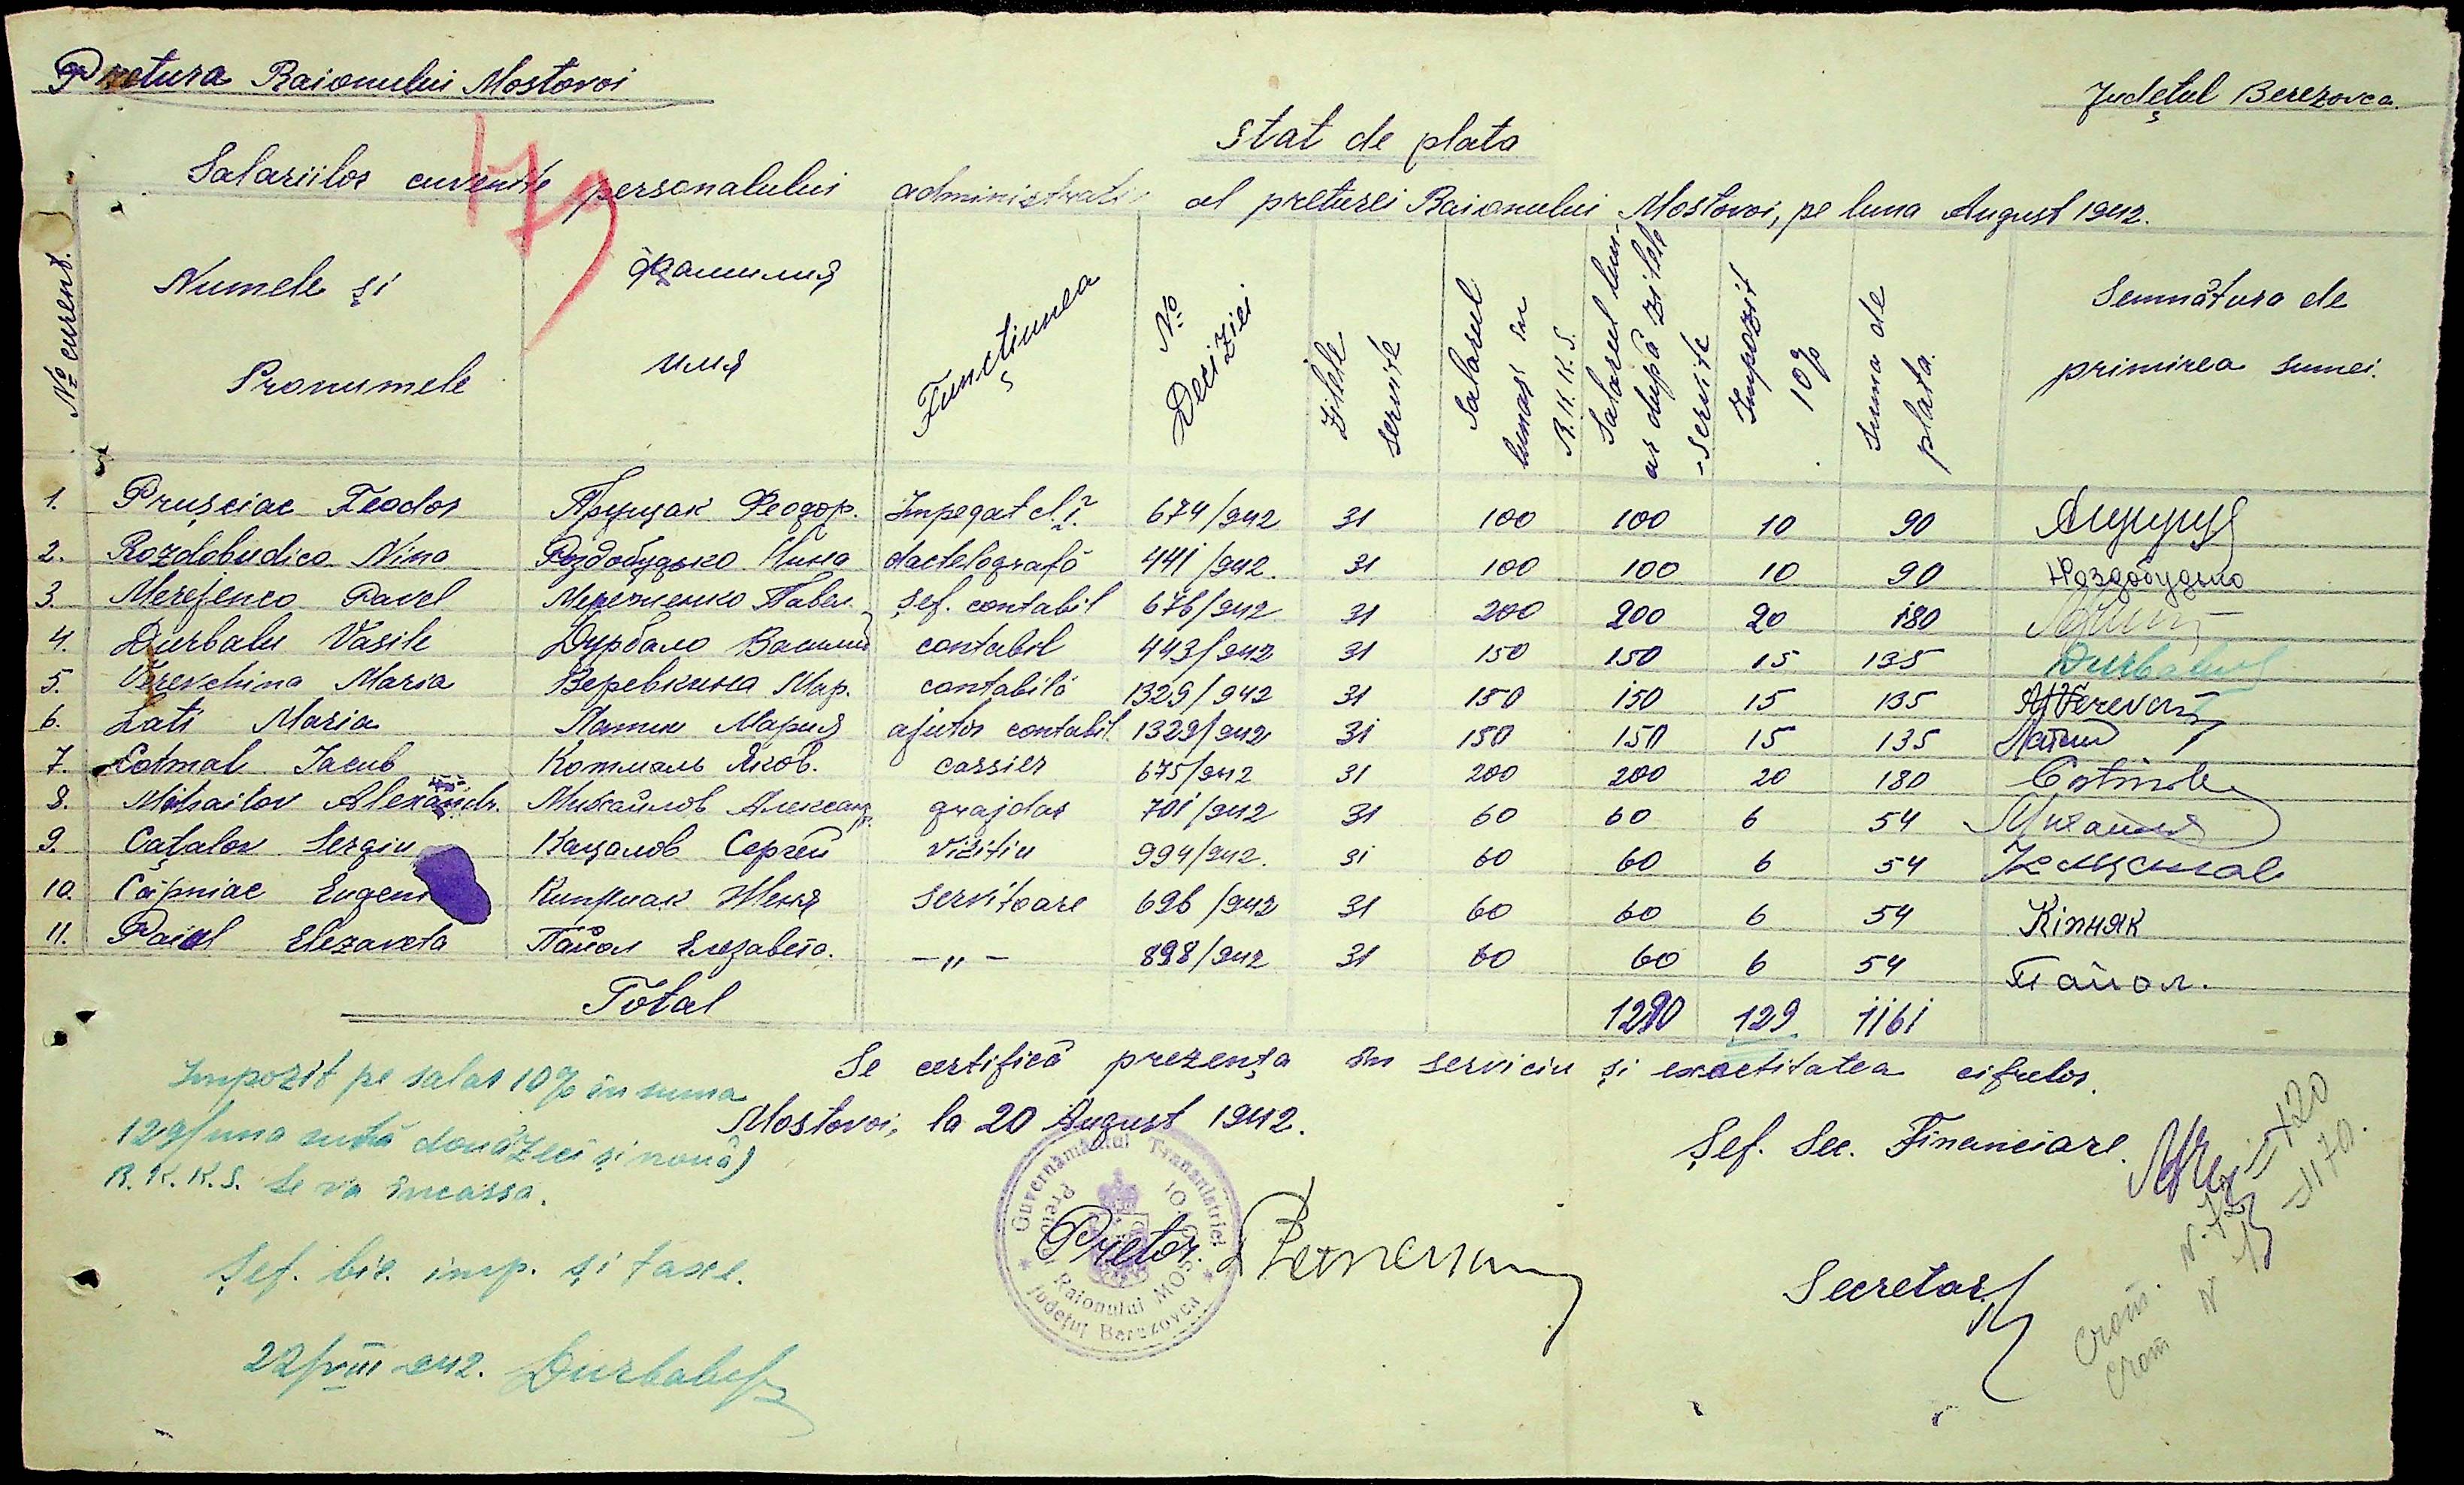 Pretura Raionului Mostovoi
Judeţul Berezovca.
Stat de plata
Salariilor cuvenite personalului administrativ al preturei Raionului Mostovoi, pe luna August 1942.
179
№ curent. Numele şi Pronumele фамилия имя Funcţiunea № Deciziei Zilele servite Salarul lunar în R.K.K.S. Salarul lunar după zilele servite Impozit 10% Suma de plata. Semnătura de primirea sumei.
1. Pruşciac Feodor Прущак Феодор. Impegat cl. I. 674/942 31 100 100 10 90
2. Rozdobudico Nina Роздобудько Нина dactelografă 441/942. 31 100 100 10 90 Роздобудько
3. Merejenco Pavel Мереженко Павел. Şef. contabil 676/942 31 200 200 20 180
4. Durbalu Vasile Дурбало Василий contabil 443/942 31 150 150 15 135 Durbalu
5. Verevchina Maria Веревкина Мар. contabilă 1329/942 31 150 150 15 135 MVerevch
6. Lati Maria Латии Мария ajutor contabil. 1329/942 31 150 150 15 135
7. Cotmal Iacub Котмаль Яков. cassier 675/942 31 200 200 20 180
8. Mihailov Alexandr. Михайлов Александр. grajdar 701/942 31 60 60 6 54
9. Caţalov Sergiu Кацалов Сергей vizitiu 994/942. 31 60 60 6 54
10. Căpniac Eugeni Кипняк Женя servitoare 696/942 31 60 60 6 54 Кіпняк
11. Paiol Elezaveta Пайол Елезавета. —„— 898/942 31 60 60 6 54 Пайол.
Total 1290 129 1161
Se certifică prezenţa în serviciu şi exactitatea cifrelor.
Mostovoi, la 20 August 1942.
Impozit pe salar 10% în suma
129/una sută douăzeci şi nouă)
R.K.K.S. se va încassa.
Şef. bir. imp. şi taxe.
22/VIII 942. Durbalu
Şef. Sec. Financiare.
Pretor.
Secretar.
Guvernământul Transnistriei
Pretura Raionului MOSTOVOI
Judeţul Berezovca